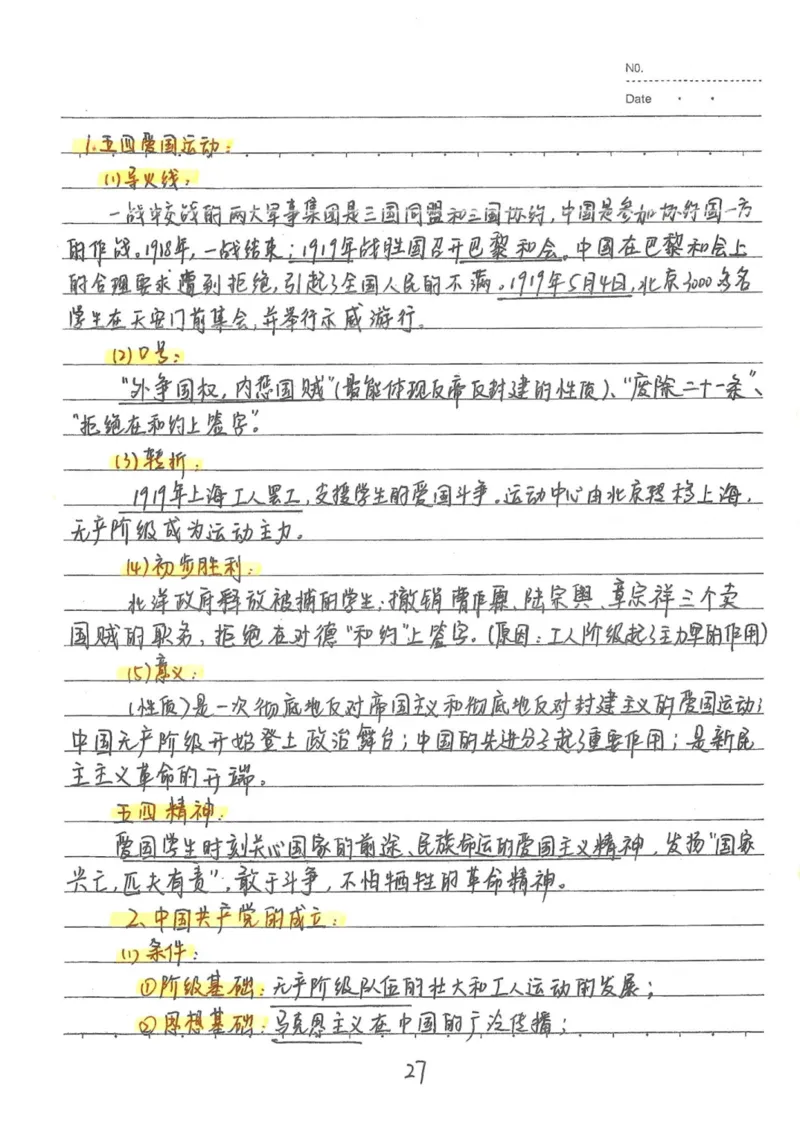 NO.
Date
1.五四爱国运动:
(1)导火线:
一战中交战的两大军事集团是三国同盟和三国协约,中国是参加协约国一方
的作战。1918年,一战结束;1919年战胜国召开巴黎和会。中国在巴黎和会上
的合理要求遭到拒绝,引起了全国人民的不满。1919年5月4日,北京3000多名
学生在天安门前集会,并举行示威游行。
(2)口号:
“外争国权,内惩国贼”(最能体现反帝反封建的性质)、“废除二十一条”、
“拒绝在和约上签字”。
(3)转折:
1919年上海工人罢工,支援学生的爱国斗争。运动中心由北京转移上海,
无产阶级成为运动主力。
(4)初步胜利:
北洋政府释放被捕的学生;撤销曹汝霖、陆宗舆、章宗祥三个卖
国贼的职务;拒绝在对德“和约”上签字。(原因:工人阶级起了主力军的作用)
(5)意义:
(性质)是一次彻底地反对帝国主义和彻底地反对封建主义的爱国运动;
中国无产阶级开始登上政治舞台;中国的先进分子起了重要作用;是新民
主主义革命的开端。
五四精神:
爱国学生时刻关心国家的前途、民族命运的爱国主义精神,发扬“国家
兴亡,匹夫有责”,敢于斗争,不怕牺牲的革命精神。
2、中国共产党的成立:
(1)条件:
①阶级基础:无产阶级队伍的壮大和工人运动的发展;
②思想基础:马克思主义在中国的广泛传播;
27